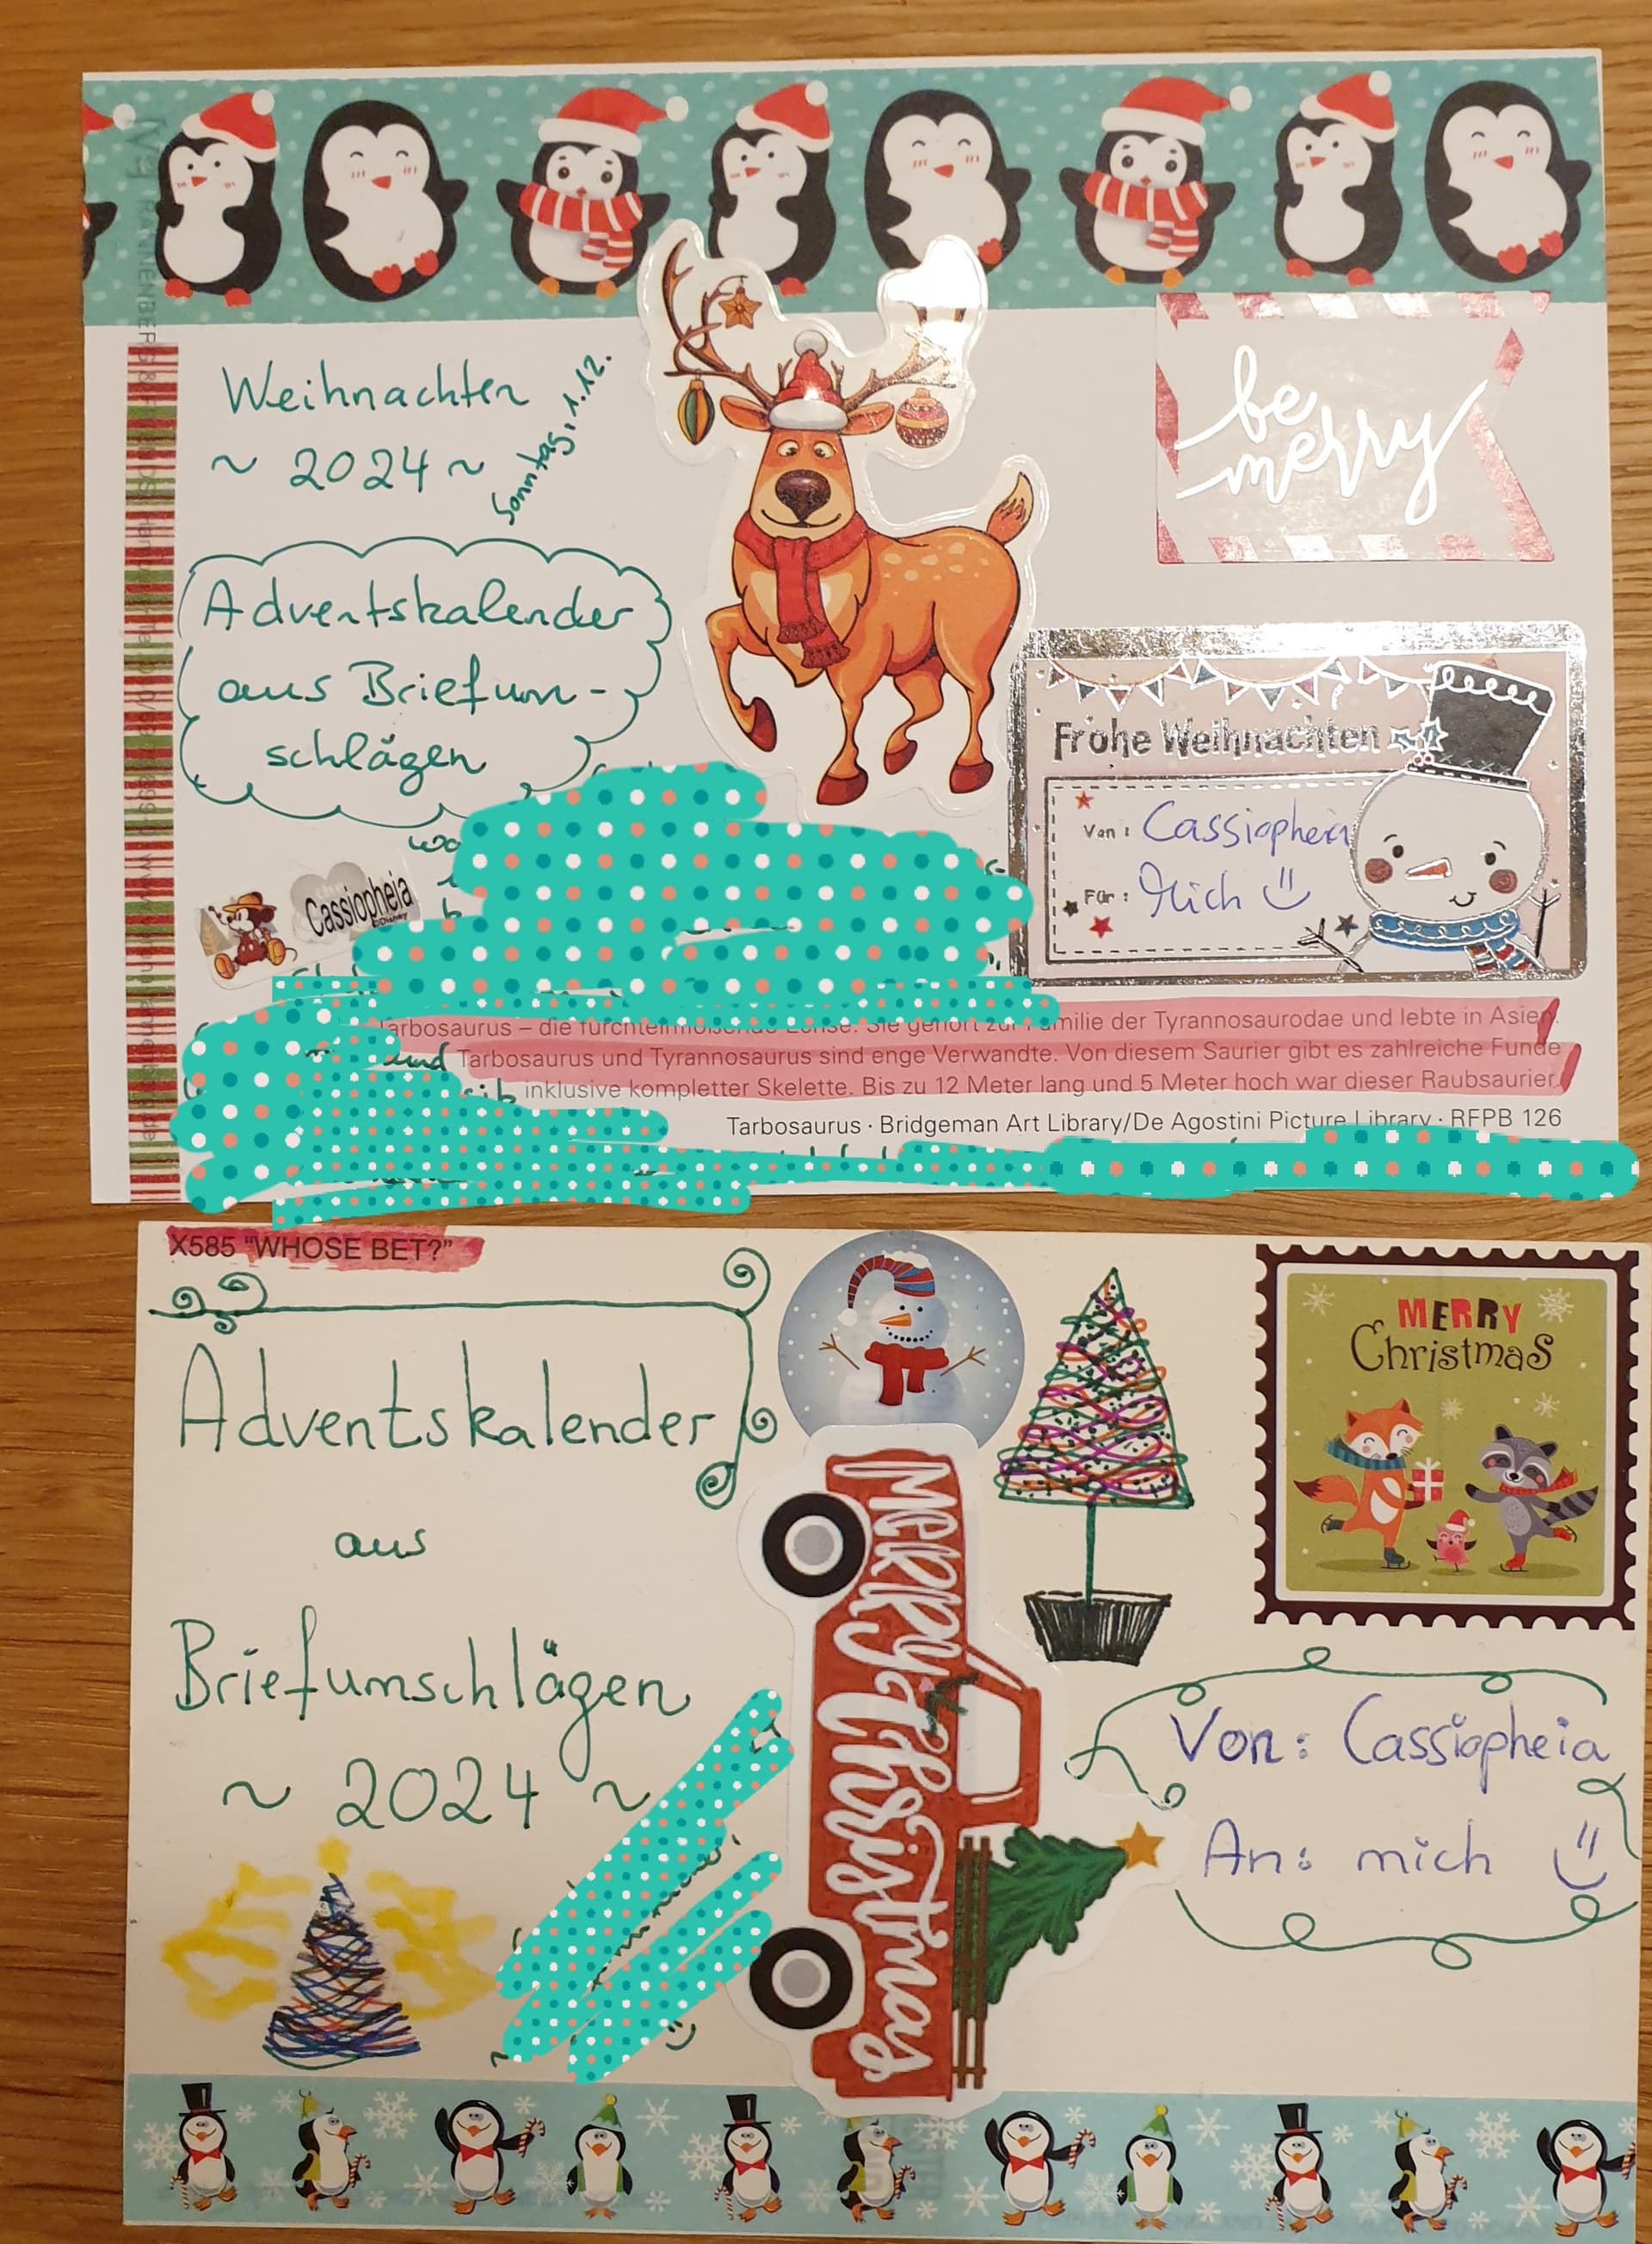 Weihnachten
~ 2024 ~
Sonntag, 1.12.
be
merry
Adventskalender
aus Briefum-
schlägen
Frohe Weihnachten
Von: Cassiopheia
Für: Mich
Cassiopheia
©Disney
Tarbosaurus – die Sie gehört zur Familie der Tyrannosaurodae und lebte in Asien.
und Tarbosaurus und Tyrannosaurus sind enge Verwandte. Von diesem Saurier gibt es zahlreiche Funde
inklusive kompletter Skelette. Bis zu 12 Meter lang und 5 Meter hoch war dieser Raubsaurier.
Tarbosaurus · Bridgeman Art Library/De Agostini Picture Library · RFPB 126
X585 "WHOSE BET?"
Adventskalender
aus
Briefumschlägen
~ 2024 ~
Merry Christmas
MERRY
Christmas
Von: Cassiopheia
An: mich